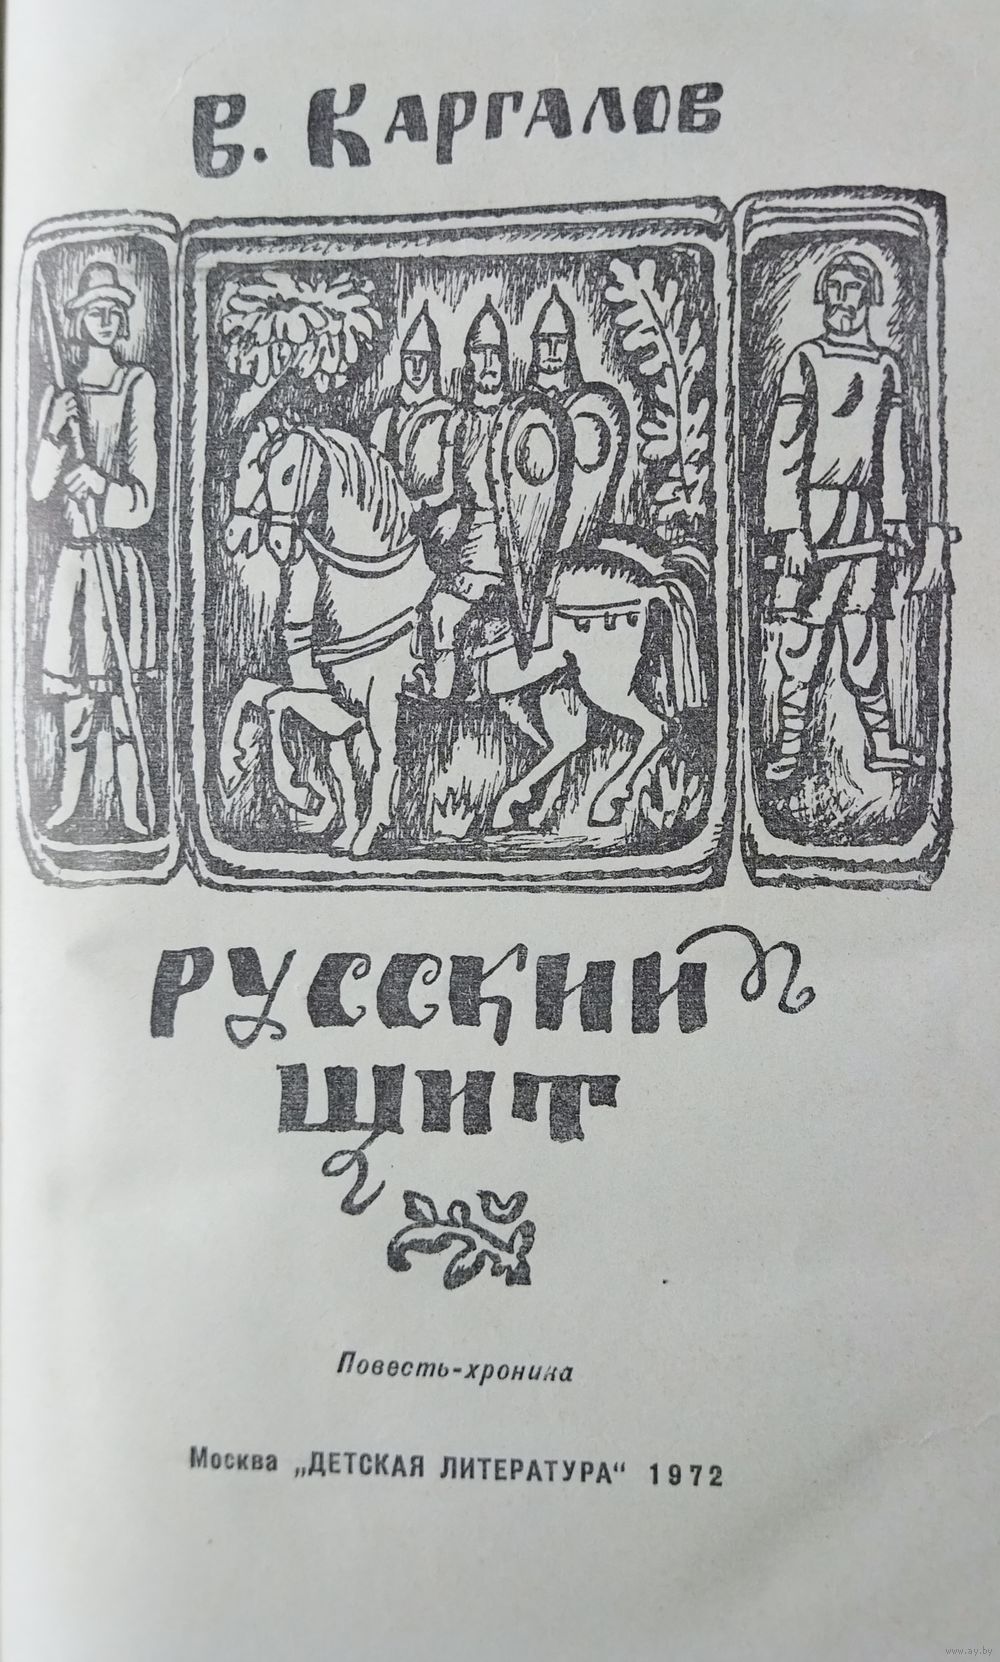 В. Каргалов
РУССКИЙ
ЩИТ
Повесть-хроника
Москва „ДЕТСКАЯ ЛИТЕРАТУРА“ 1972
www.ay.by